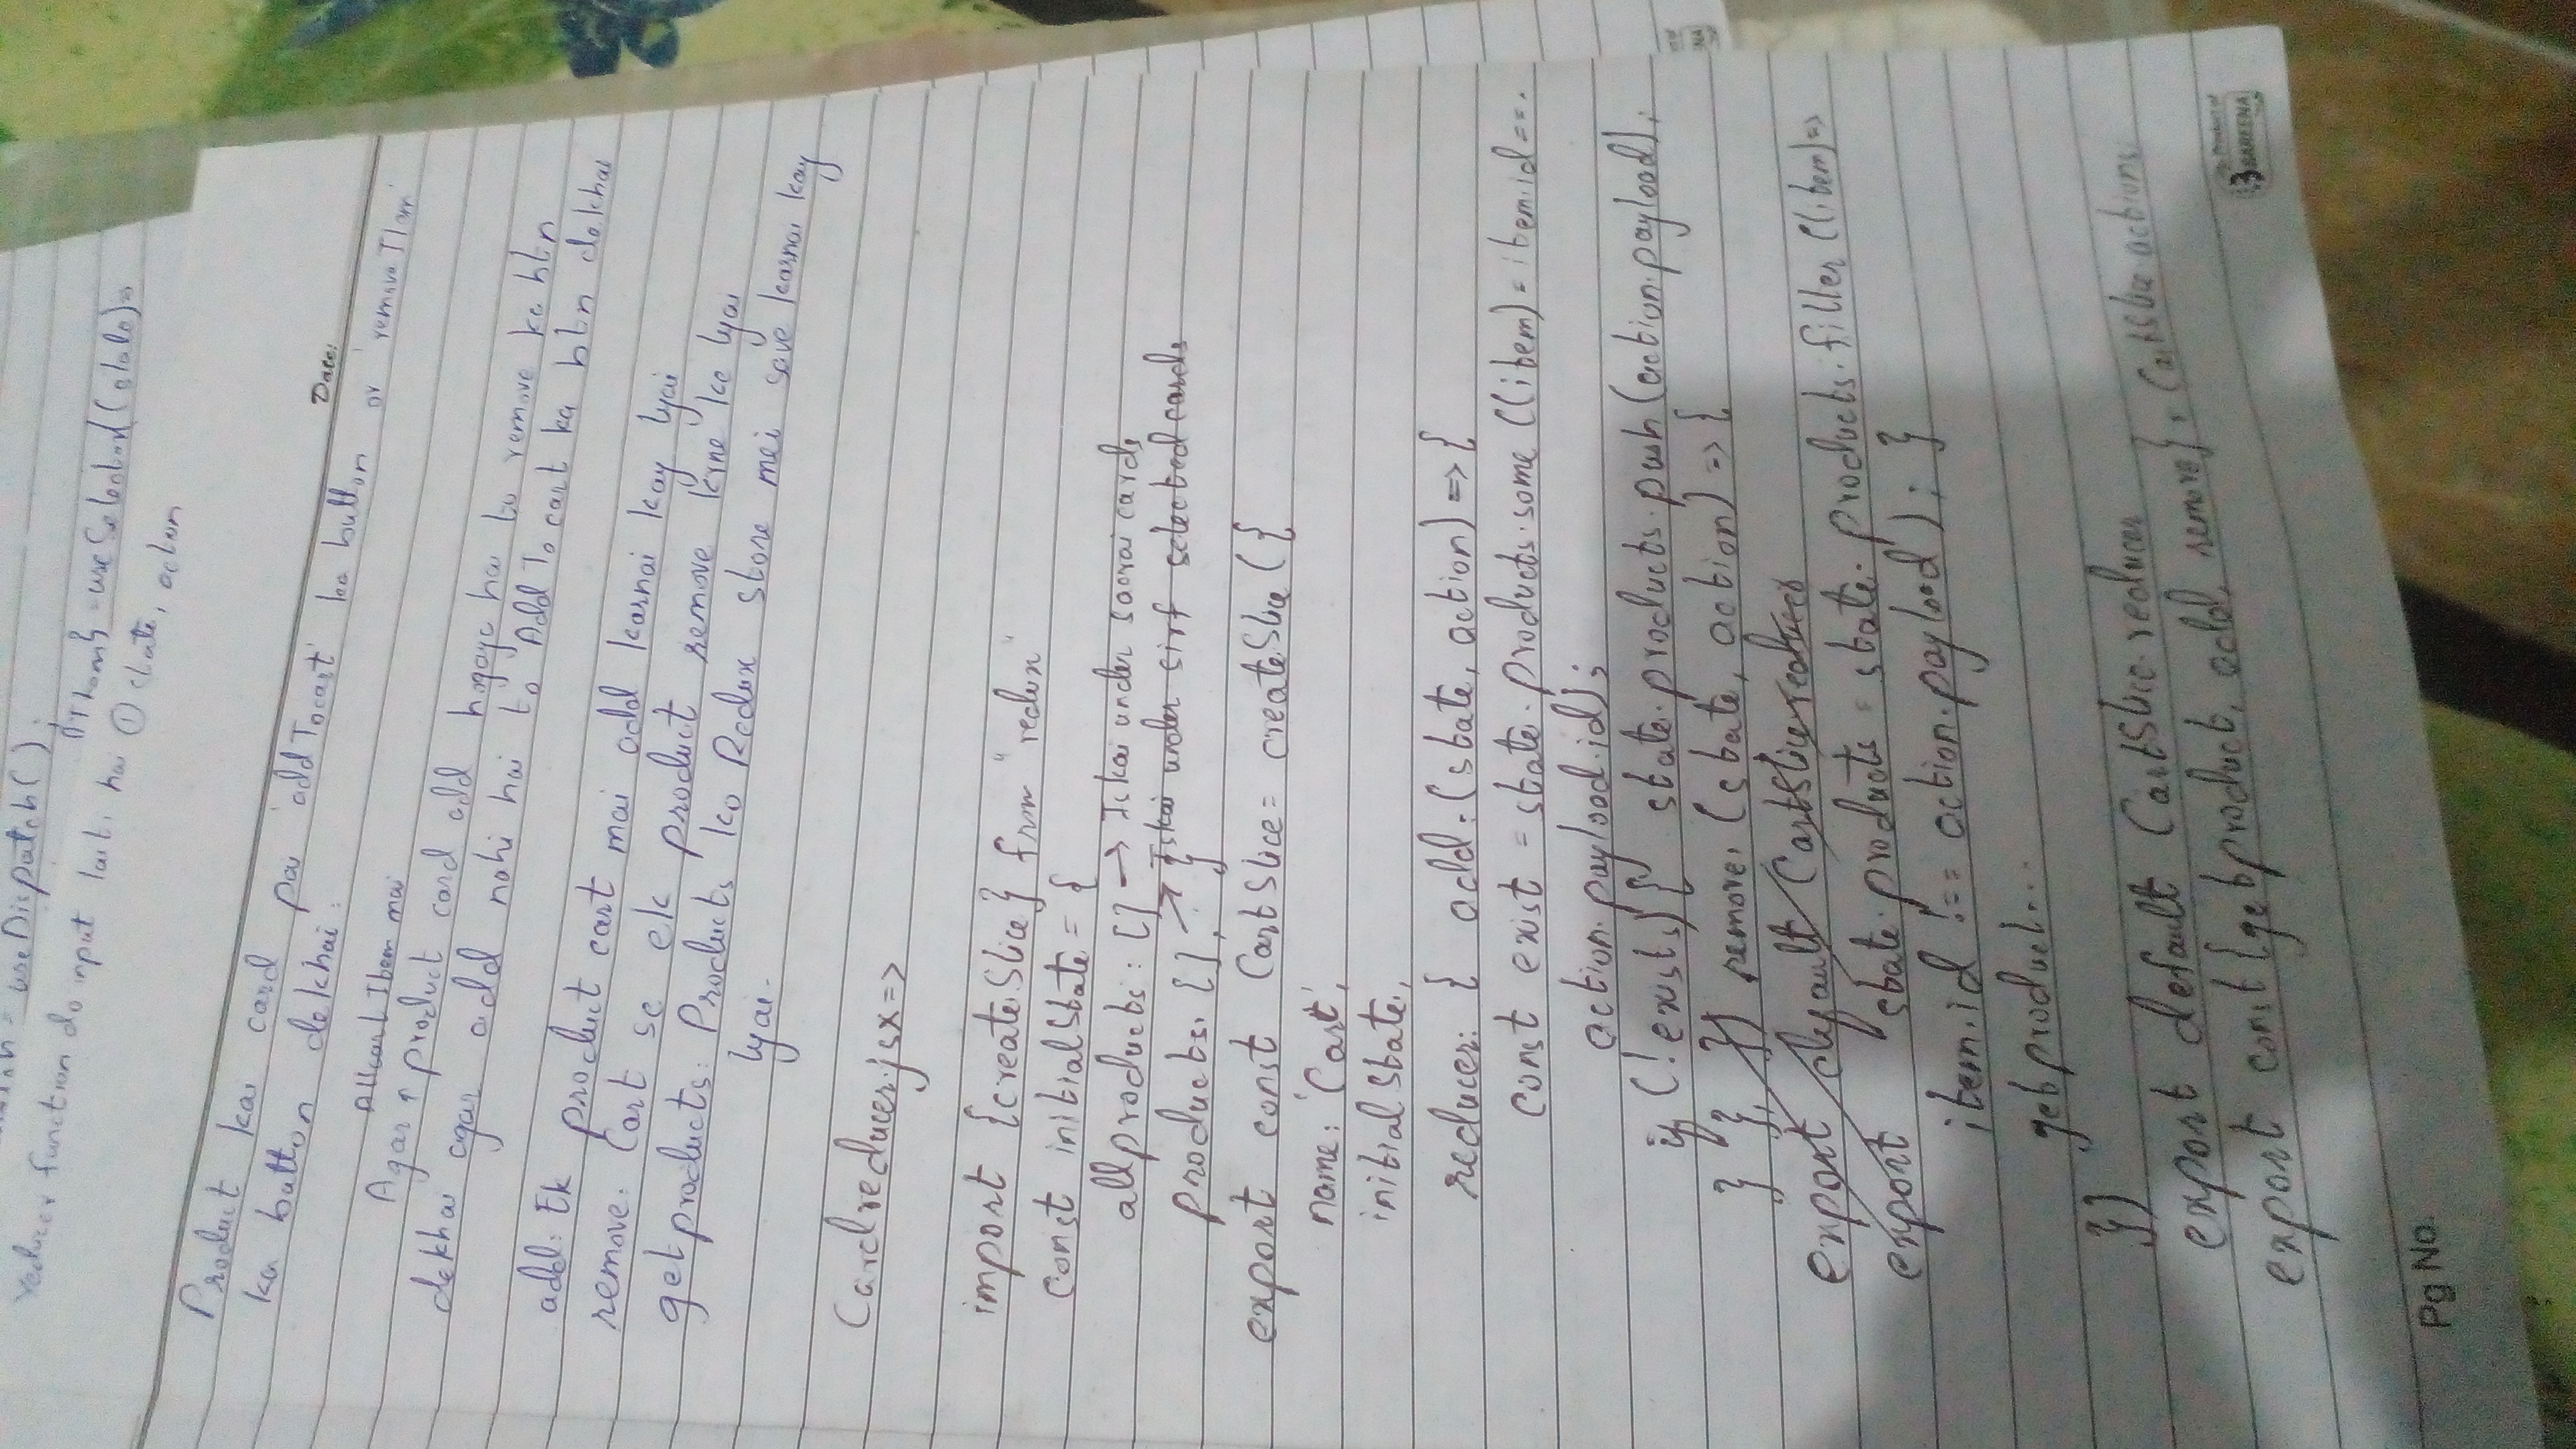 = useDispatch();
= useSelector((state)=>
reducer function do input laita hai ① state, action
Date:
Product kai card pai 'addTocart' ka button or 'removeItem'
ka button dekhai.
Allcart Item mai
Agar ↑ product card add hogaya hai to remove ka btn
dekhai agar add nahi hai to Add To cart ka btn dekhai
add: Ek product cart mai add karnai kay lyai
remove: Cart se ek product remove krne ke lyai
getproducts: Products ko Redux store mei save karnai kay
lyai.
Cardreducer.jsx=>
import {createSlice} from "redux"
const initialState = {
allproducts: [] → Iskai under saarai cards
products: [], } → Iskai under sirf selected cards
export const CartSlice = createSlice({
name: 'Cart',
initialState,
reducer: { add: (state, action) => {
const exist = state.products.some((item) = item.id ===
action.payload.id);
if (!exists) { state.products.push(action.payload);
} }, }) remove: (state, action) => {
export default CartSlice.reducer
export state.products = state.products.filter((item)=>
item.id !== action.payload); }
getproduct...
})
export default CartSlice.reducer
export const {getproduct, add, remove} = CartSlice.actions;
Product of
SAREENA
Pg No.